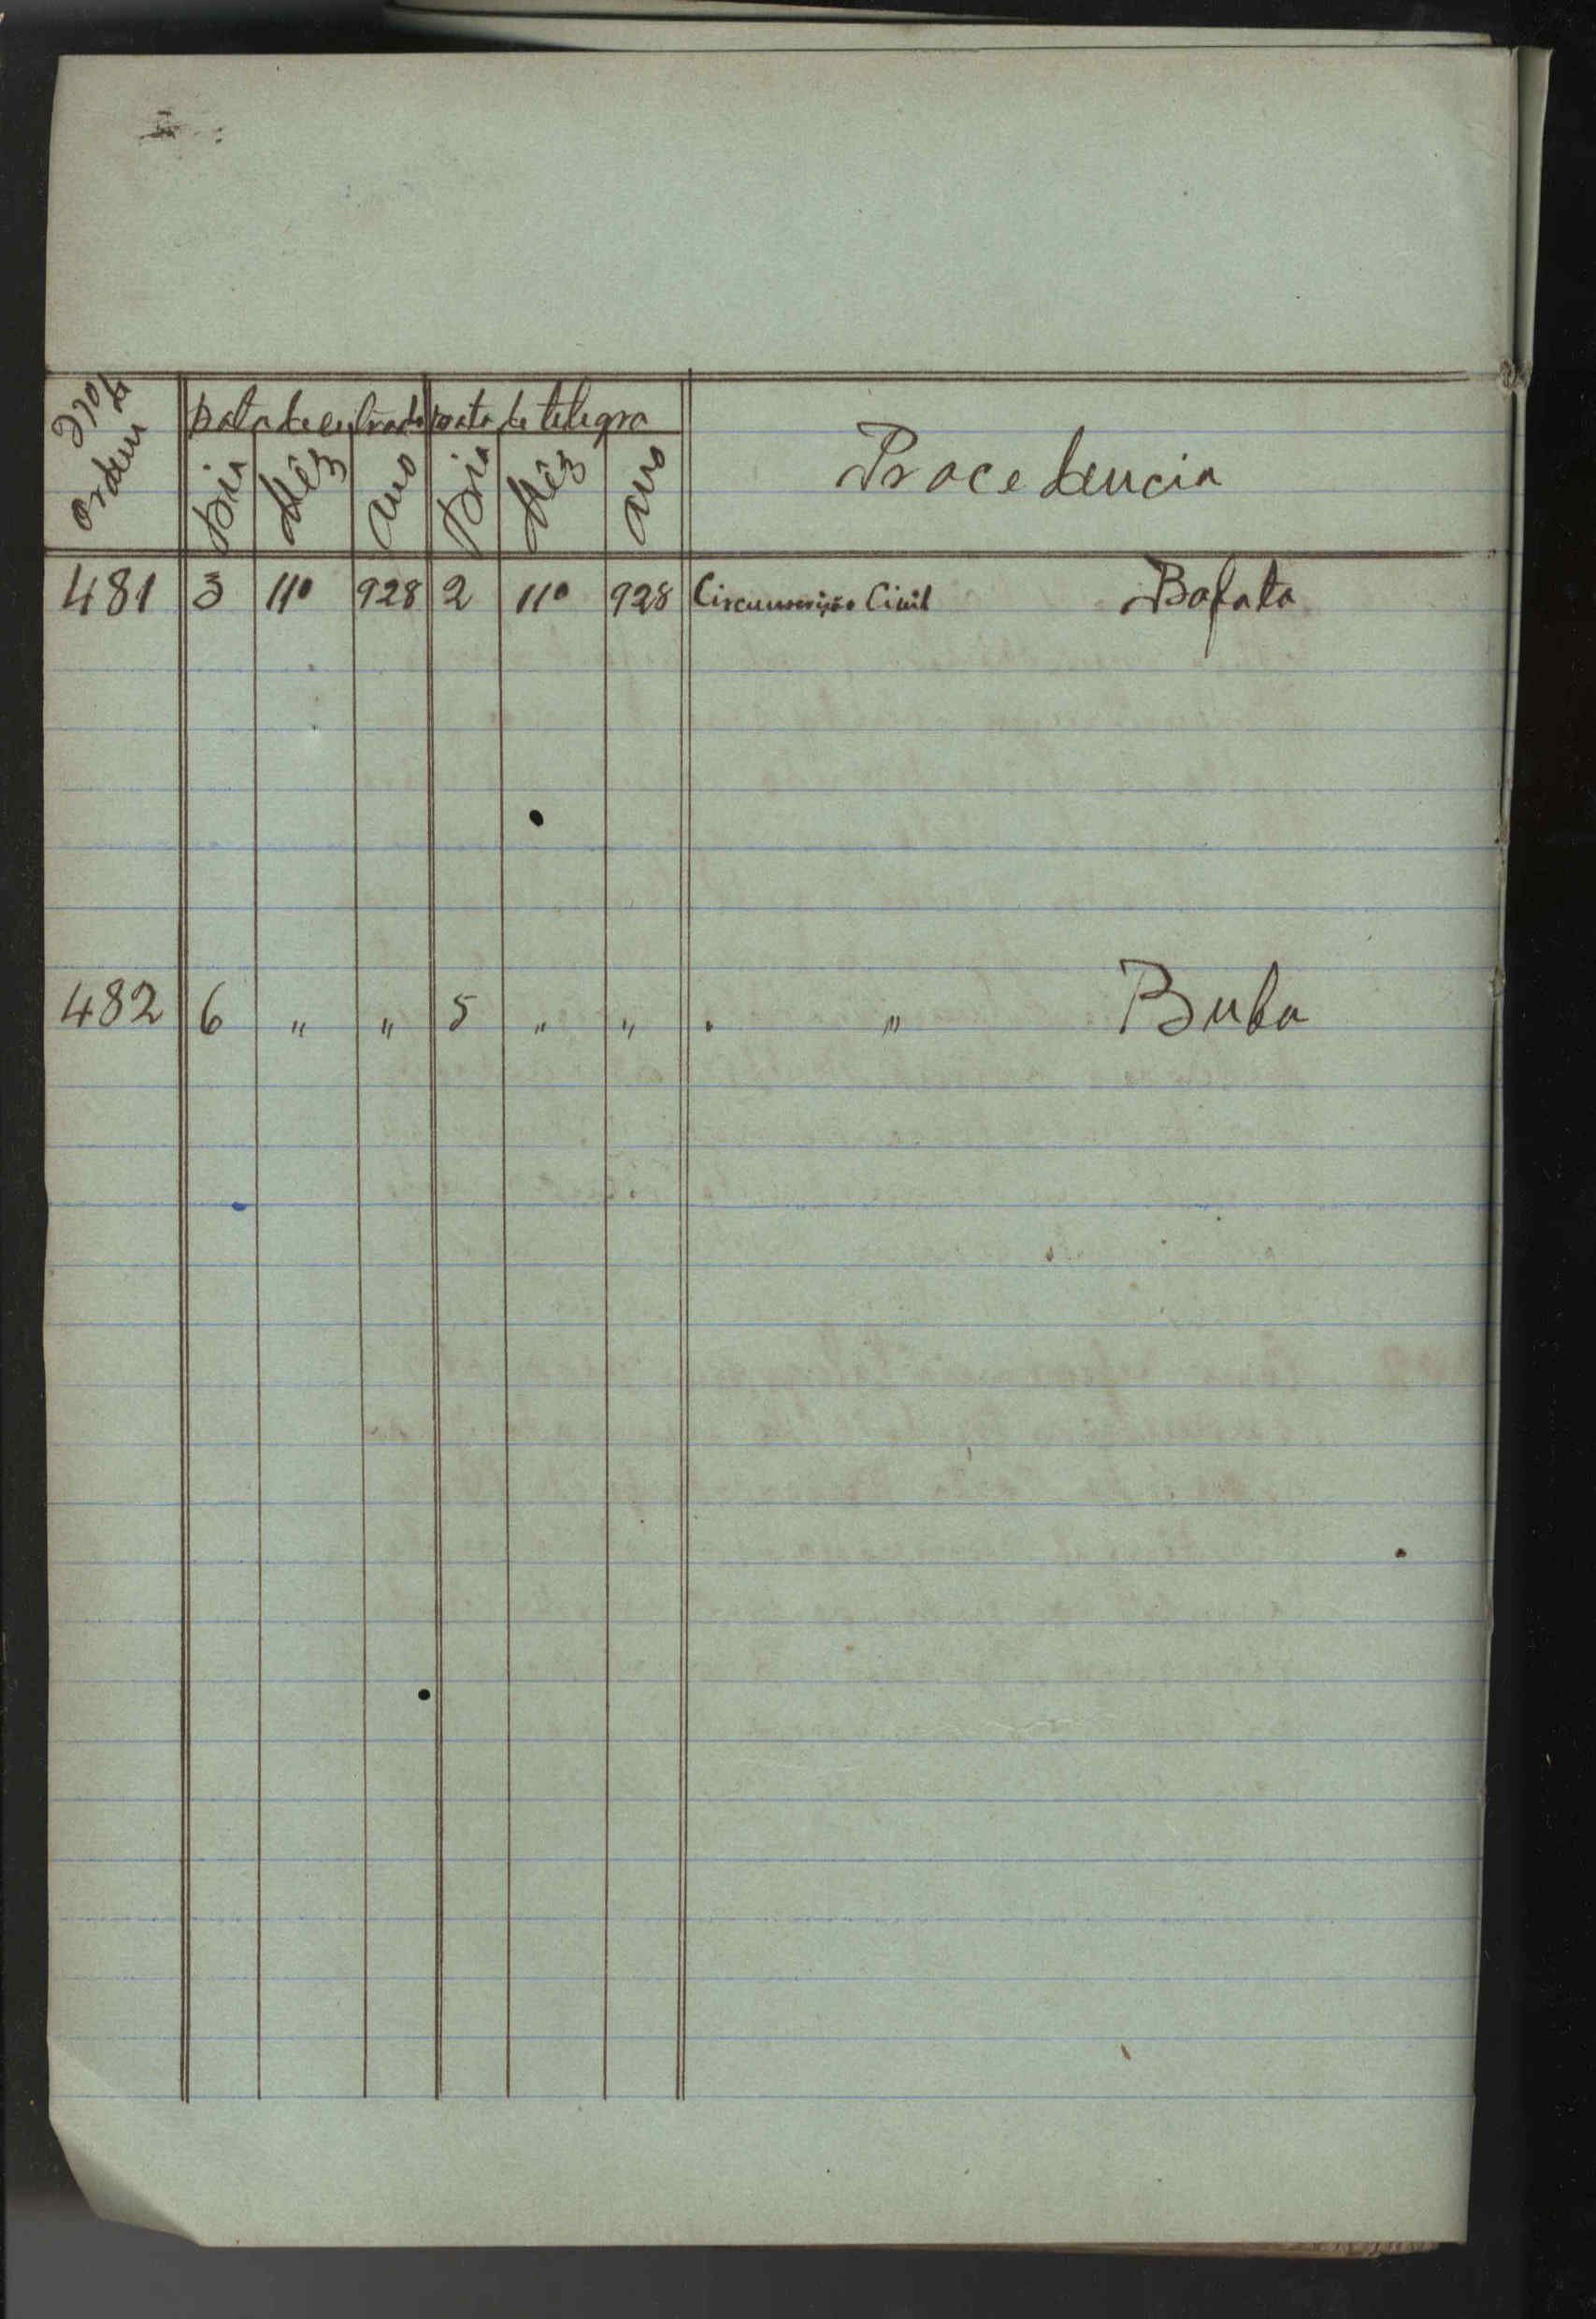 Nº de ordem Data de entrada Data de telegra Procedencia
Dia Mêz Ano Dia Mêz Ano
481 3 11º 928 2 11º 928 Circunscrição Civil Bafata
482 6 " " 5 " " . " Buba